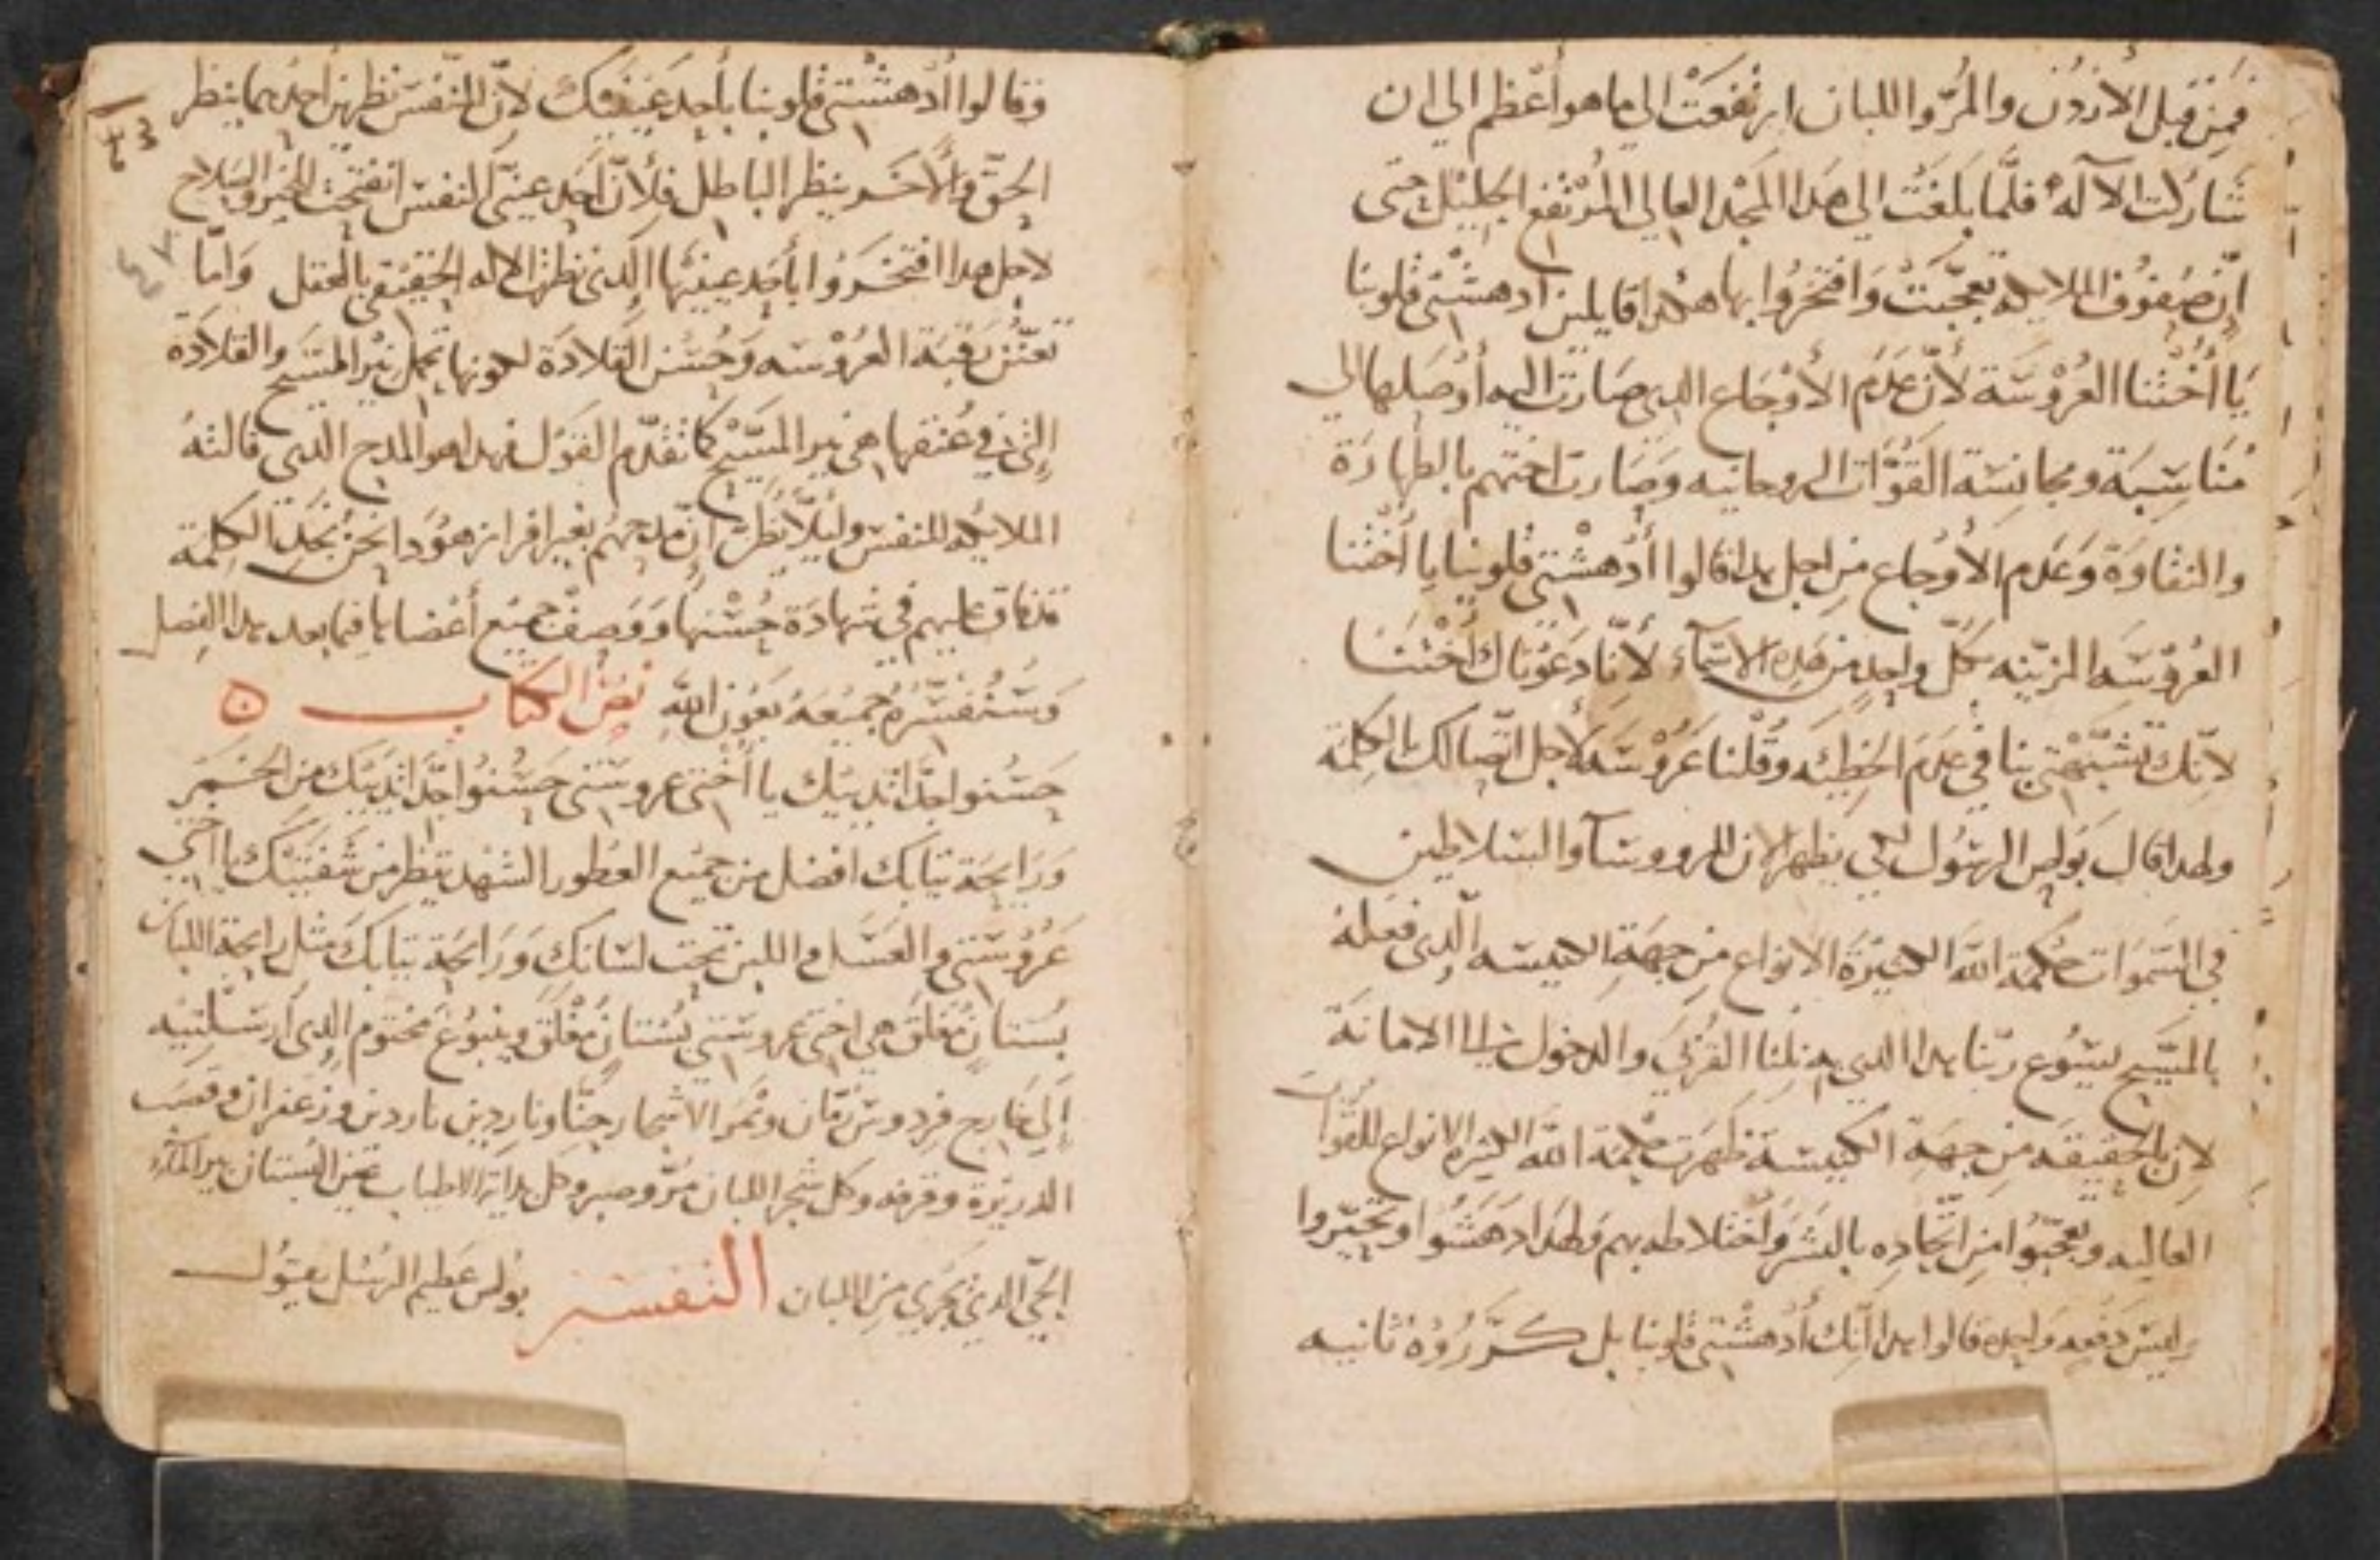 فمن قبل الأردن والمر واللبان ارتفعت الي ما هو أعظم الي ان
شاركت الآله فلما بلغت الي هدا المجد العالي المرتفع الجليل حتى
إن صفوف الملايكه تعجبت وافتخروا بها هكدا قايلين أدهشتي قلوبنا
يا أختنا العروسة لأن عدم الأوجاع الدي صارت اليه أوصلها الي
مناسبة ومجانسة القوات الروحانيه وصارت اختهم بالطهارة
والنقاوة وعدم الأوجاع من اجل هدا قالوا أدهشتي قلوبنا يا أختنا
العروسه المزينه بكل واحد من هده الاسماء لأننا دعوناك أختنا
لانك تشبهتي بنا في عدم الخطيئه وقلنا عروسه لاجل اتصالك بالكلمة
ولهدا قال بولس الرسول لكي يظهر الان للرووسآ والسلاطين
في السموات حكمة الله الكثيرة الانواع من جهة الكنيسه الدي فعله
بالمسيح يسوع ربنا هدا الدي به نلنا القربى والدخول الامانة
لان بالحقيقه من جهة الكنيسة ظهرت حكمة الله الكثيرة الانواع للقوات
العاليه وتعجبوا من اتحاده بالبشر واختلاطه بهم ولهدا ادهشوا وتحيروا
وليس دفعه واحده قالوا هدا انك أدهشتي قلوبنا بل كرروه ثانيه
٤٣
وقالوا أدهشتي قلوبنا بأحد عينيك لأن النفس نظرين أحدهما ينظر
الحق والأخر ينظر الباطل فلأن احد عيني النفس انفتحت للخير والصلاح
لاجل هدا افتخروا بأحد عينيها الدي نظر الاله الحقيقي بالعقل وأما
تعنز رقبة العروسه وحسن القلادة لكونها تحمل نير المسيح والقلادة
التي في عنقها هي نير المسيح كما تقدم القول فهدا هو المدح الدي قالته
الملايكه للنفس وليلا نظن ان مدحهم بغير افراز هودا نحن نجد الكلمة
توافق عليهم في شهادة حسنها ووصف جميع أعضايها فيما بعد هدا الفصل
وسنفسره جميعه بعون الله نص الكتاب
حسنوا جدا ثدييك يا أختي عروستي حسنوا جدا ثدييك من الخمر
ورايحة تيابك افضل من جميع العطور الشهد تقطر من شفتيك يا اختي
عروستي والعسل واللبن تحت لسانك ورايحة تيابك مثل رايحة اللبان
بستان مغلق هي اختي عروستي بستان مغلق وينبوع مختوم الدي أرسلتيه
إلي خارج فردوس رمان وثمر الاشجار حنا وناردين ناردين وزعفران وقصب
الدريرة وقرفه وكل شجر اللبان مر وصبر وكل بداية الاطياب عين البستان بير الماء
الحي الدي يجري من اللبان التفسير بولس عظيم الرسل يقول